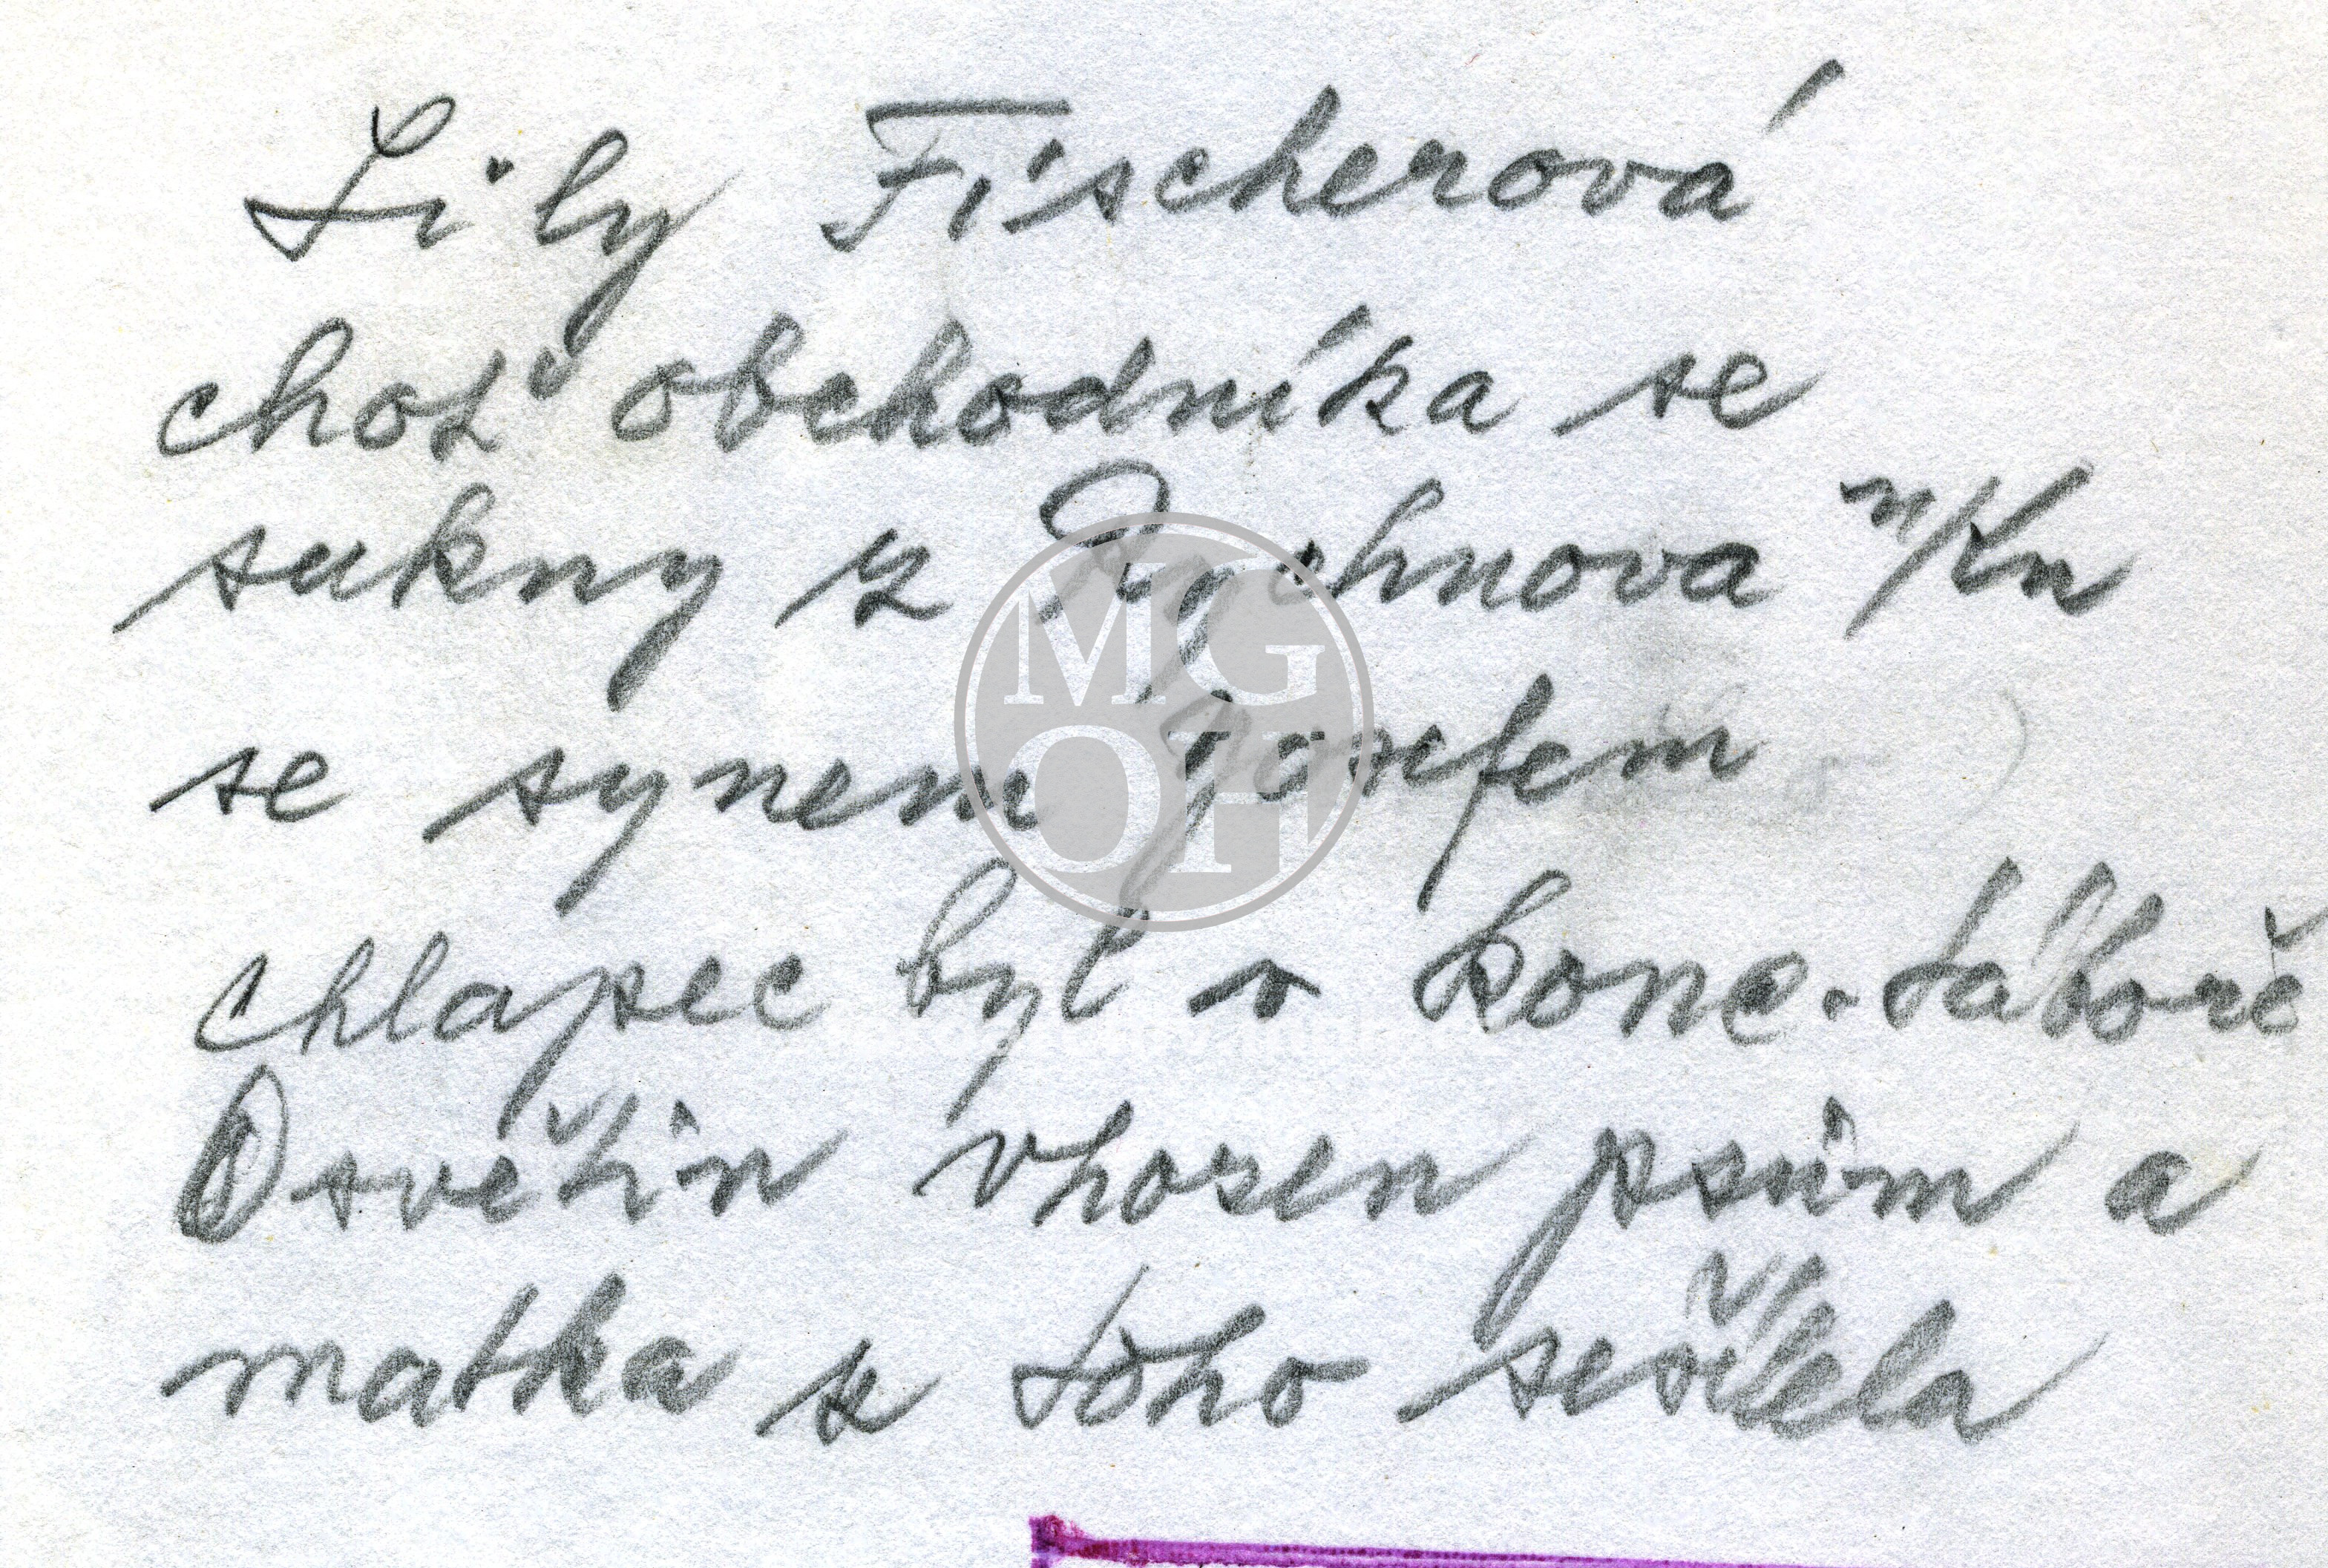 Lily Fischerová
choť obchodníka se
sukny z Rychnova n/Kn
se synem Josefem
MG
OH
chlapec byl v konc. táboře
Osvětim vhozen psům a
matka z toho sešílela